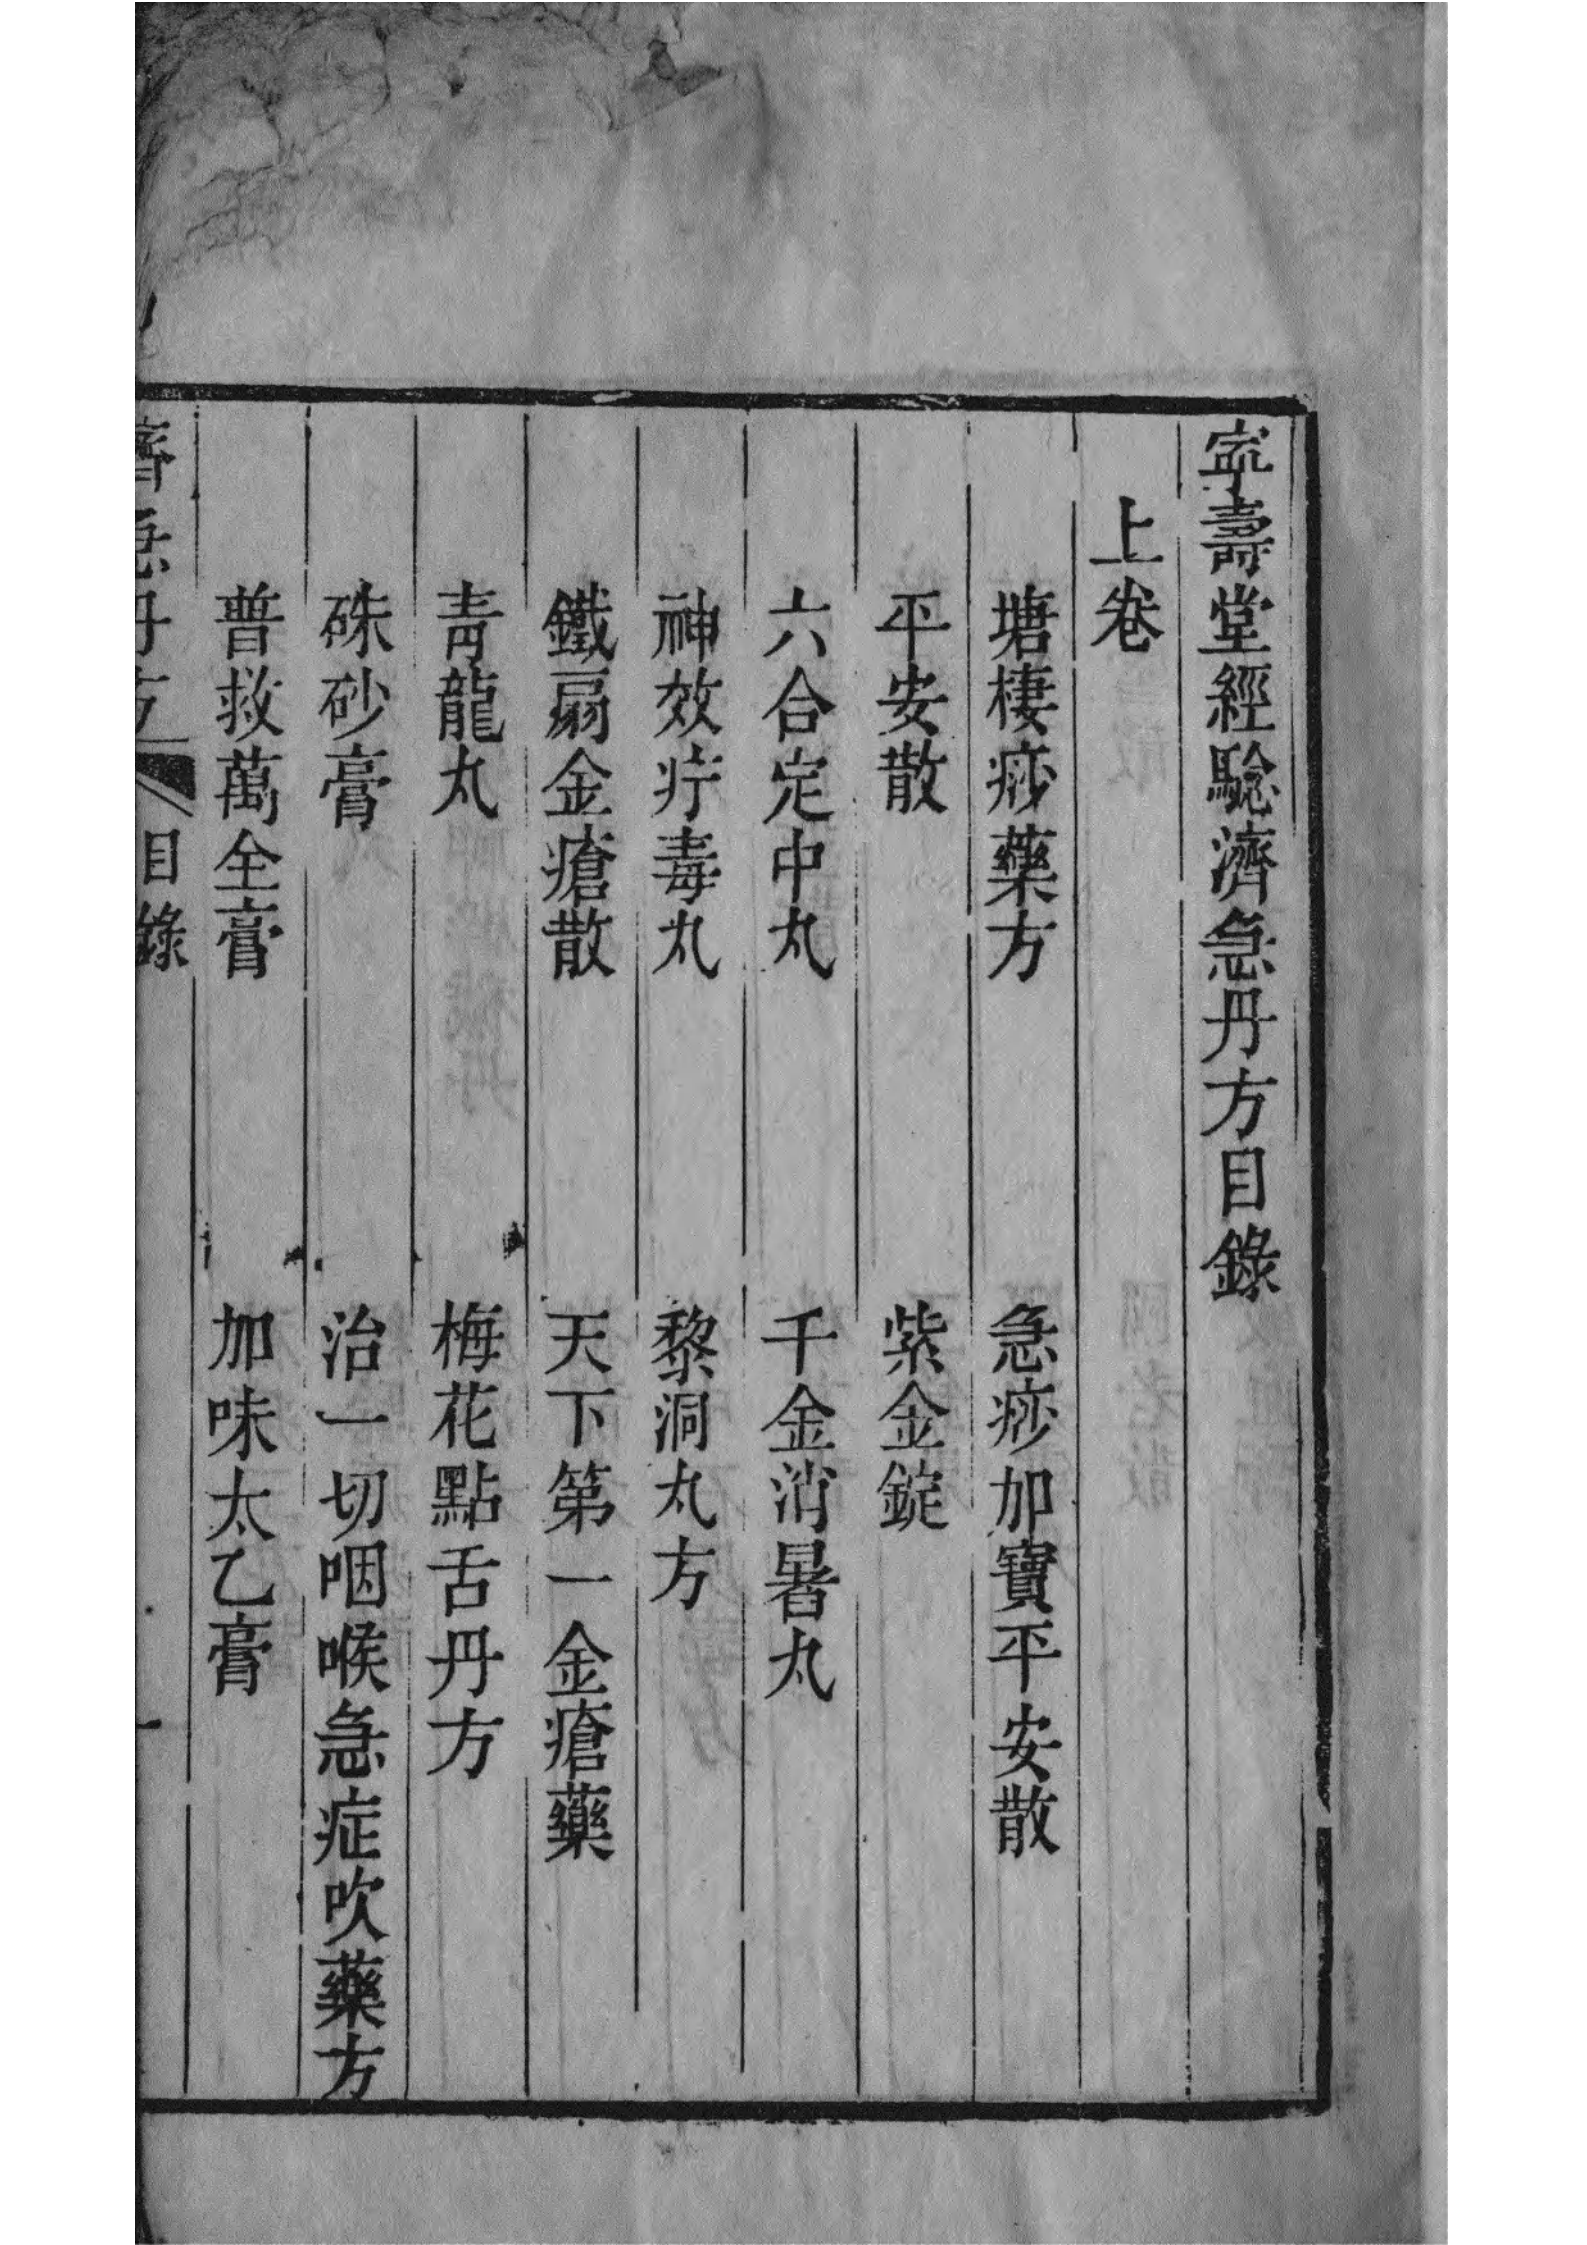 寧壽堂經驗濟急丹方目錄
上卷
塘棲痧藥方　急痧加寶平安散
平安散　紫金錠
六合定中丸　千金消暑丸
神效疔毒丸　黎洞丸方
鐵扇金瘡散　天下第一金瘡藥
青龍丸　梅花點舌丹方
硃砂膏　治一切咽喉急症吹藥方
普救萬全膏　加味太乙膏
濟急丹方　目錄　一